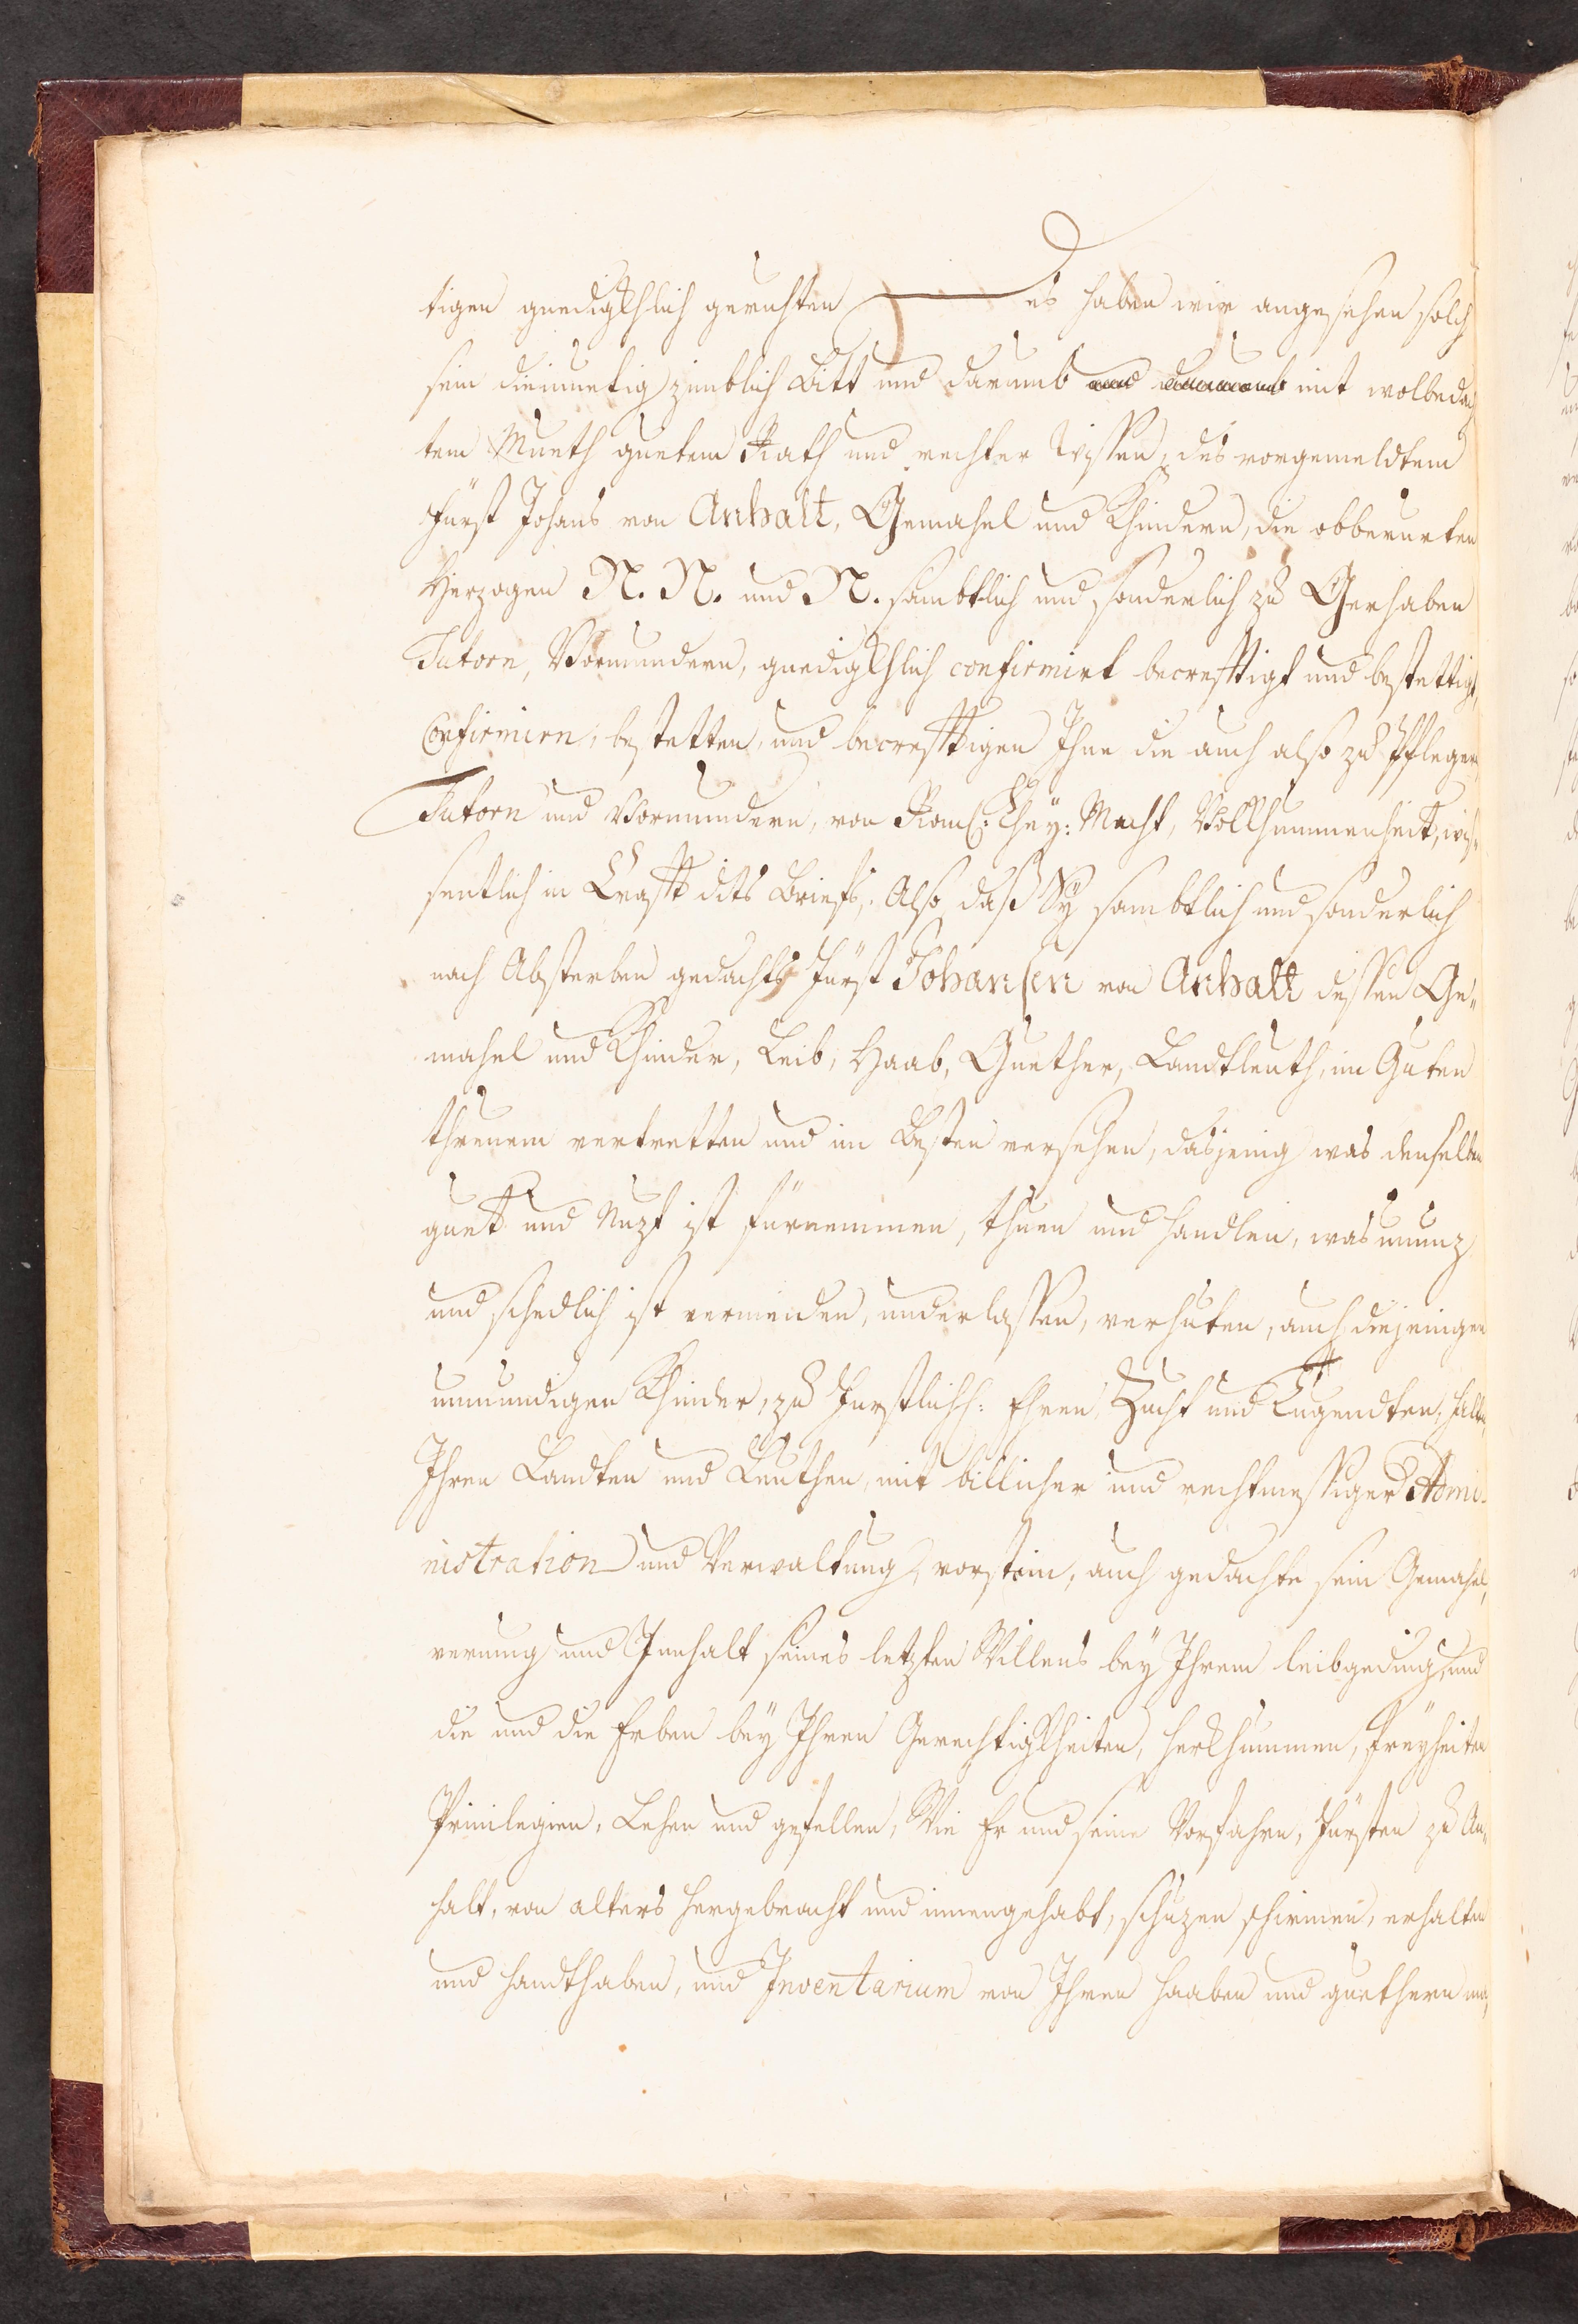 tigen gnedigkhlich geruchten Des haben wir angesehen solch
sein diemuetig zimblich Bitt und darumb und darumb mit wolbedach
tem Mueth guetem Rath und rechter Wissen, des vorgemeldtem
Fürst Johans von Anhalt, Gemahel und Khindern, die obberurten
Herzogen N. N. und N. sambtlich und sonderlich zu Gerhaben
Tutorn, Vormundern, gnedigkhlich confirmirt becrefftigt und bestettigt,
Confirmirn, bestetten, und becrefftigen Ihne die auch also zu Pflegern
Tutorn und Vormundern, von Röm: Khay: Macht, Vollkhummenheit, wis-
sentlich in Crafft dits Briefs, Also daß Sy sambtlich und sonderlich
nach Absterben gedachts Fürst Johansen von Anhalt dessen Ge-
mahel und Khinder, Leib, Haab, Guether, Landtleuth, im Guten
threuem vertretten und im Besten versehen, dasjenig was denselben
guet und Nuzt ist fürnemmen, thuen und handlen, was unnuz
und schedlich ist vermeiden, underlassen, verhuten, auch diejenigen
unmundigen Khinder, zu Furstlich: Ehren, Zucht und Tugendten, halten
Ihren Landten und Leuthen, mit billicher und rechtmessiger Admi-
nistration und Verwaltung, vorstein, auch gedachte sein Gemahel,
vermug und Innhalt seines letzten Willens bey Ihrem leibgeding, und
die und die Erben bey Ihren Gerechtigkheiten, herkhummen, freyheiten
Privilegien, Lehen und gefellen, Wie Er und seine Vorfahrn, Fürsten zu An-
halt, von alters hergebracht und innengehabt, schuzen schirmen, erhalten
und handthaben, und Inventarium von Ihren Haaben und guethern